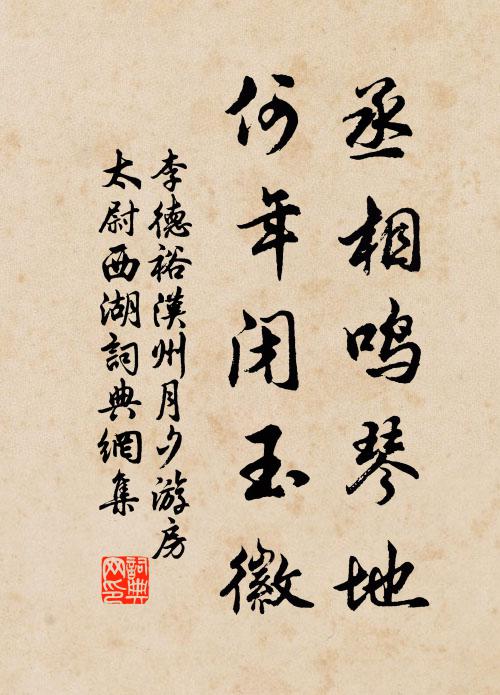 丞相鸣琴地
何年闭玉徽
李德裕漢州月夕游房
太尉西湖詞典網集
詞典
网印